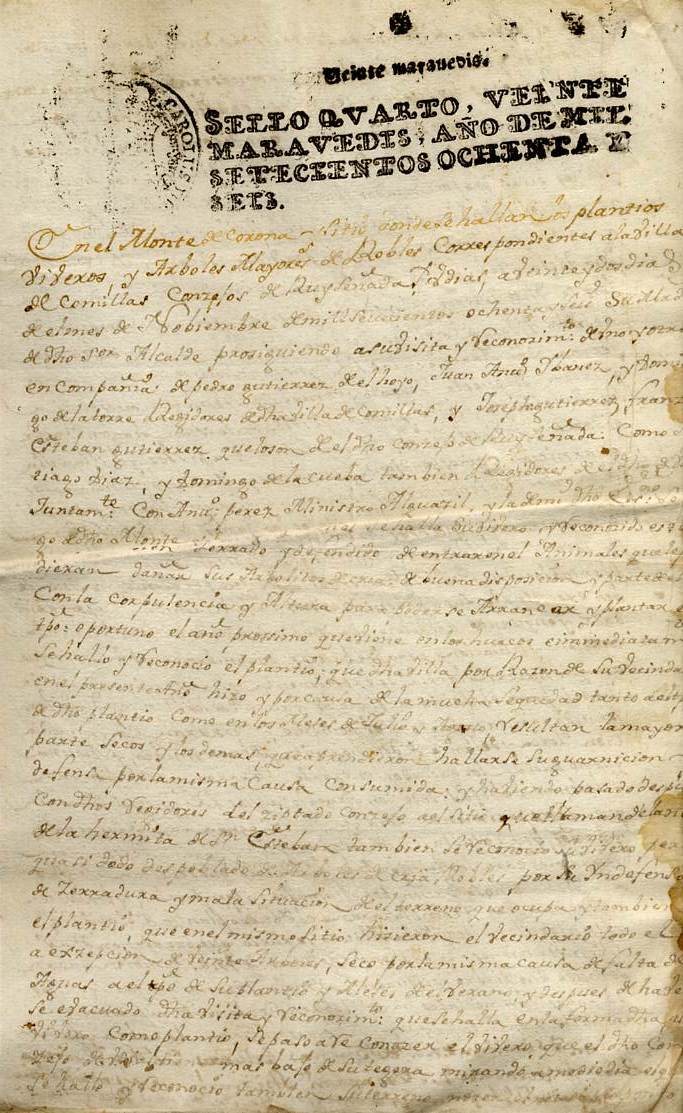 Veinte maravedis.
SELLO QVARTO, VEINTE
MARAVEDIS, AÑO DE MIL
SETECIENTOS OCHENTA Y
SEIS.
CAROLUS
En el Monte de Corona sitio donde se hallan los plantios
Viveros, y Arboles Mayores de Robles Correspondientes a la Villa
de Comillas Conzejos de Ruyseñada, Vdias, a veinte y dos dias
de el mes de Nobiembre de mill setecientos ochenta y seis su Mrd
de dho Sor Alcalde prosiguiendo a su Visita y Reconozimto. de uno y otro
en Compañia de pedro gutierrez de el hoyo, Juan Anto Ybanez, y Domin
go de la torre Regidores de dha Villa de Comillas, y Joseph gutierrez, Franco
Esteban gutierrez que lo son de el dho Conzejo de Ruyseñada: Como
tiago Diaz, y Domingo de la Cueba tambien Regidores de el dho de
Juntamte. Con Anto. perez Ministro Alguazil, y
go de dho Monte se halla su Vivero, y Reconozido esta
Zerrado y defendido de entrar en el Animales que le pu
dieran dañar sus Arbolitos de cria de buena disposicion y parte de
Con la corpulencia y Altura para poderse Arrancar y plantar
tpo. oportuno el año prossimo que viene en los huecos e immediatam
se hallo y Reconocio el plantio, que dha Villa por Razon de su Vecinda
en el presente año hizo y por causa de la mucha sequedad tanto
de dho plantio Como en los Meses de Julio y Agosto, resultan la mayor
parte secos y los demas, que aprendieron hallarse su guarnicion
defensa por la misma Causa Consumida: y habiendo pasado despues
Con dhos Regidores del ziptado Conzejo a el sitio que llaman de la
de la hermita de Sn. Esteban tambien se Reconocio su Vivero, pero
quasi todo despoblado de Arboles de cria Robles, por su Yndefenso
de Zerradura y mala situacion de el terreno que ocupa y tambien
el plantio, que en el mismo sitio hizieron el Vecindario todo el
a exzepcion de veinte Arboles, seco por la misma causa de falta de
Aguas a el tpo de su plantio y Meses de el Verano, y despues de haver
se evacuado dha Visita y Reconozimto. que se halla en la forma dha
Vivero Como plantio, se paso a Reconozer el Vivero, que el dho Con
zejo de tien mas bajo de su mirando a medio dia
se hallo y Reconocio tambien su terreno